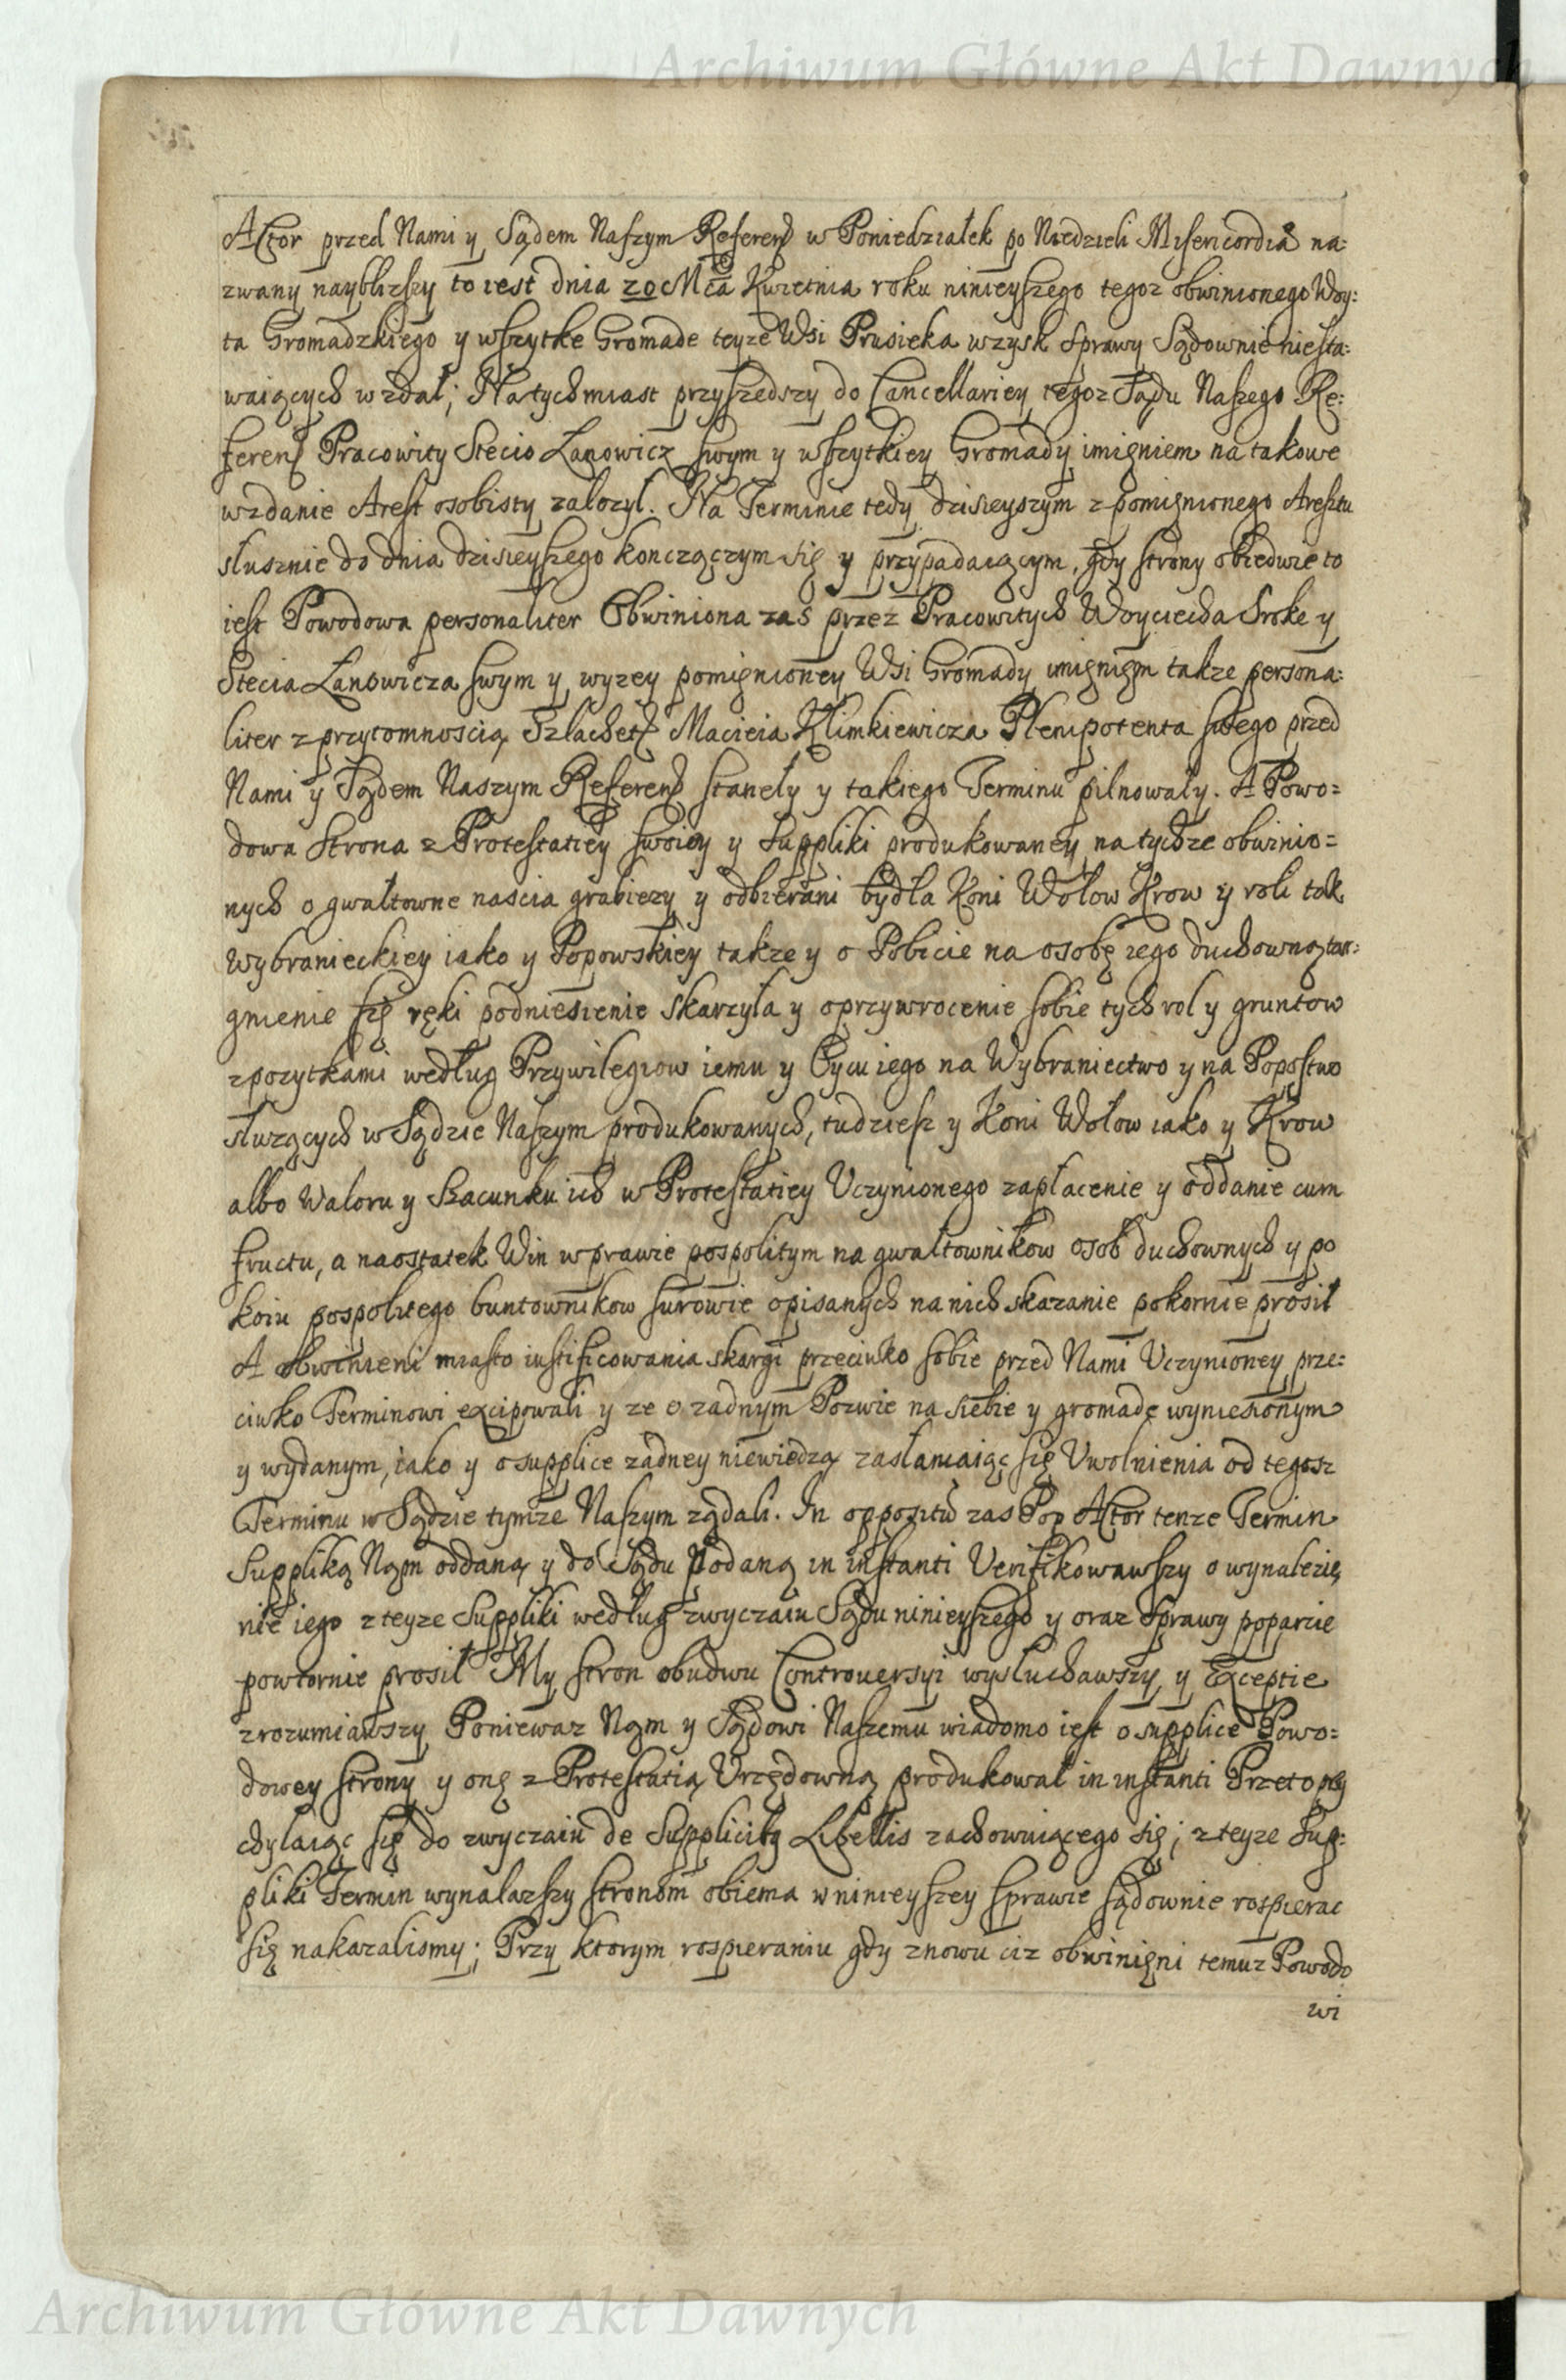 Archiwum Główne Akt Dawnych
Actor przed Nami y Sądem Naszym Referend w Poniedziałek po Niedzieli Misericordia na:
zwany nayblizszy to iest dnia 20 Mca Kwietnia roku ninieyszego tegoz obwinionego Woy:
ta Gromadzkiego y wszytke Gromade teyze Wsi Prusieka wzysk sprawy Sądownie niesta:
waiących wzdał; Natychmiast przyszedszy do Cancellariey tegoz Sądu Naszego Re:
ferend Pracowity Stecio Lanowicz swym y wszytkiey Gromady imieniem na takowe
wzdanie Arest osobisty załozył. Na Terminie tedy dzisieyszym z pomięnionego Aresztu
słusznie do dnia dzisieyszego konczączym się y przypadaiącym, gdy strony obiedwie to
iest Powodowa personaliter Obwiniona zas przez Pracowitych Woyciecha Sroke y
Stecia Lanowicza swym y wyzey pomięnioney Wsi Gromady imięnięm takze persona:
liter z przytomnoscią Szlachet Macieia Klimkiewicza Plenipotenta swego przed
Nami y Sądem Naszym Referend staneły y takiego Terminu pilnowały. A Powo=
dowa Strona z Protestatiey swoiey y Suppliki produkowaney na tychze obwinio=
nych o gwałtowne nascia grabiezy y odbierani bydła Koni Wołow Krow y roli tak
Wybranieckiey iako y Popowskiey takze y o Pobicie na osobę iego duchowną tar:
gnienie się ręki podniesienie skarzyła y oprzywrocenie sobie tych rol y gruntow
z pozytkami według Przywilegiow iemu y Oycu iego na Wybraniectwo y na Popostwo
słuzących w Sądzie Naszym produkowanych, tudziesz y Koni Wołow iako y Krow
albo Waloru y Szacunku ich w Protestatiey Uczynionego zapłacenie y oddanie cum
fructu, a naostatek Win w prawie pospolitym na gwałtownikow osob duchownych y po
koiu pospolitego buntownikow surowie opisanych na nich skazanie pokornie prosił
A obwinieni miasto iustificowania skargi przeciwko sobie przed Nami Uczynioney prze:
ciwko Terminowi excipowali y ze o zadnym Pozwie na siebie y gromadę wyniesionym
y wydanym, iako y o supplice zadney niewiedzą zasłaniaiąc się Uwolnienia od tegosz
Terminu w Sądzie tymze Naszym ządali. In oppositu zas Pop Actor tenze Termin
Suppliką Nąm oddaną y do Sądu podaną in instanti Verifikowawszy o wynalezię
nie iego z teyze Suppliki według zwyczaiu Sądu ninieyszego y oraz sprawy poparcie
powtornie prosił My stron obudwu Controversyi wysłuchawszy y Exceptie
zrozumiawszy Poniewaz Nąm y Sądowi Naszemu wiadomo iest o supplice Powo=
dowey strony y onę z Protestatią Urzędowną produkował in instanti Przeto przy
chylaiąc się do zwyczaiu de Supplicibq Libellis zachowuiącego się; z teyze Sup:
pliki Termin wynalazszy stronom obiema w ninieyszey sprawie sądownie rospierac
się nakazalismy; Przy ktorym rospieraniu gdy znowu ciz obwinięni temuz Powodo
wi
Archiwum Główne Akt Dawnych